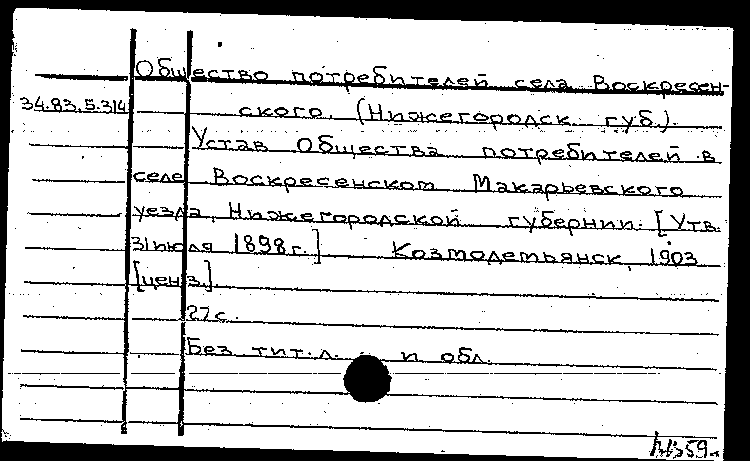 Общество потребителей села Воскресен-
34.83.5.314 ского. (Нижегородск. губ.).
Устав Общества потребителей в
селе Воскресенском Макарьевского
уезда, Нижегородской губернии. [Утв.
31 июля 1898 г.] Козмодемьянск, 1903
[ценз.].
27 с.
Без тит. л. и обл.